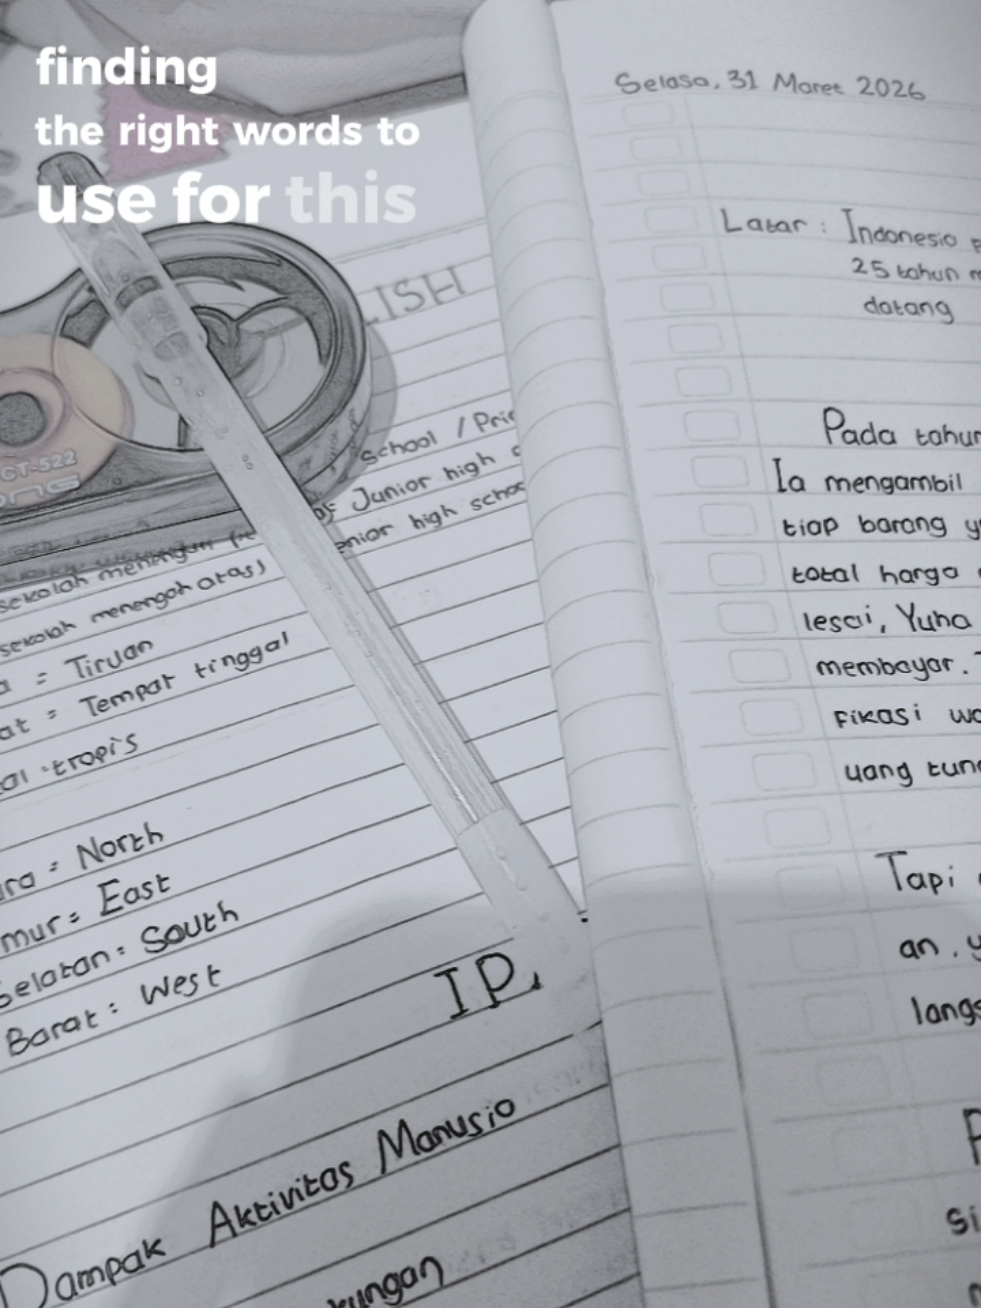 finding
the right words to
use for this
LISH
CT-522
school / Pri
of Junior high s
enior high schoo
sekolah menengah
sekolah menengah atas)
a = Tiruan
at = Tempat tinggal
al = tropis
ara = North
mur = East
Selatan = South
Barat = West
IPA
Dampak Aktivitas Manusia
kungan
Selasa, 31 Maret 2026
Latar : Indonesia
25 tahun m
datang
Pada tahun
Ia mengambil
tiap barang y
total harga
lesai, Yuna
membayar.
Fikasi wa
uang tun
Tapi
an. y
langs
P
si